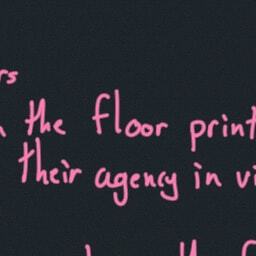 rs
the floor print
their agency in vi